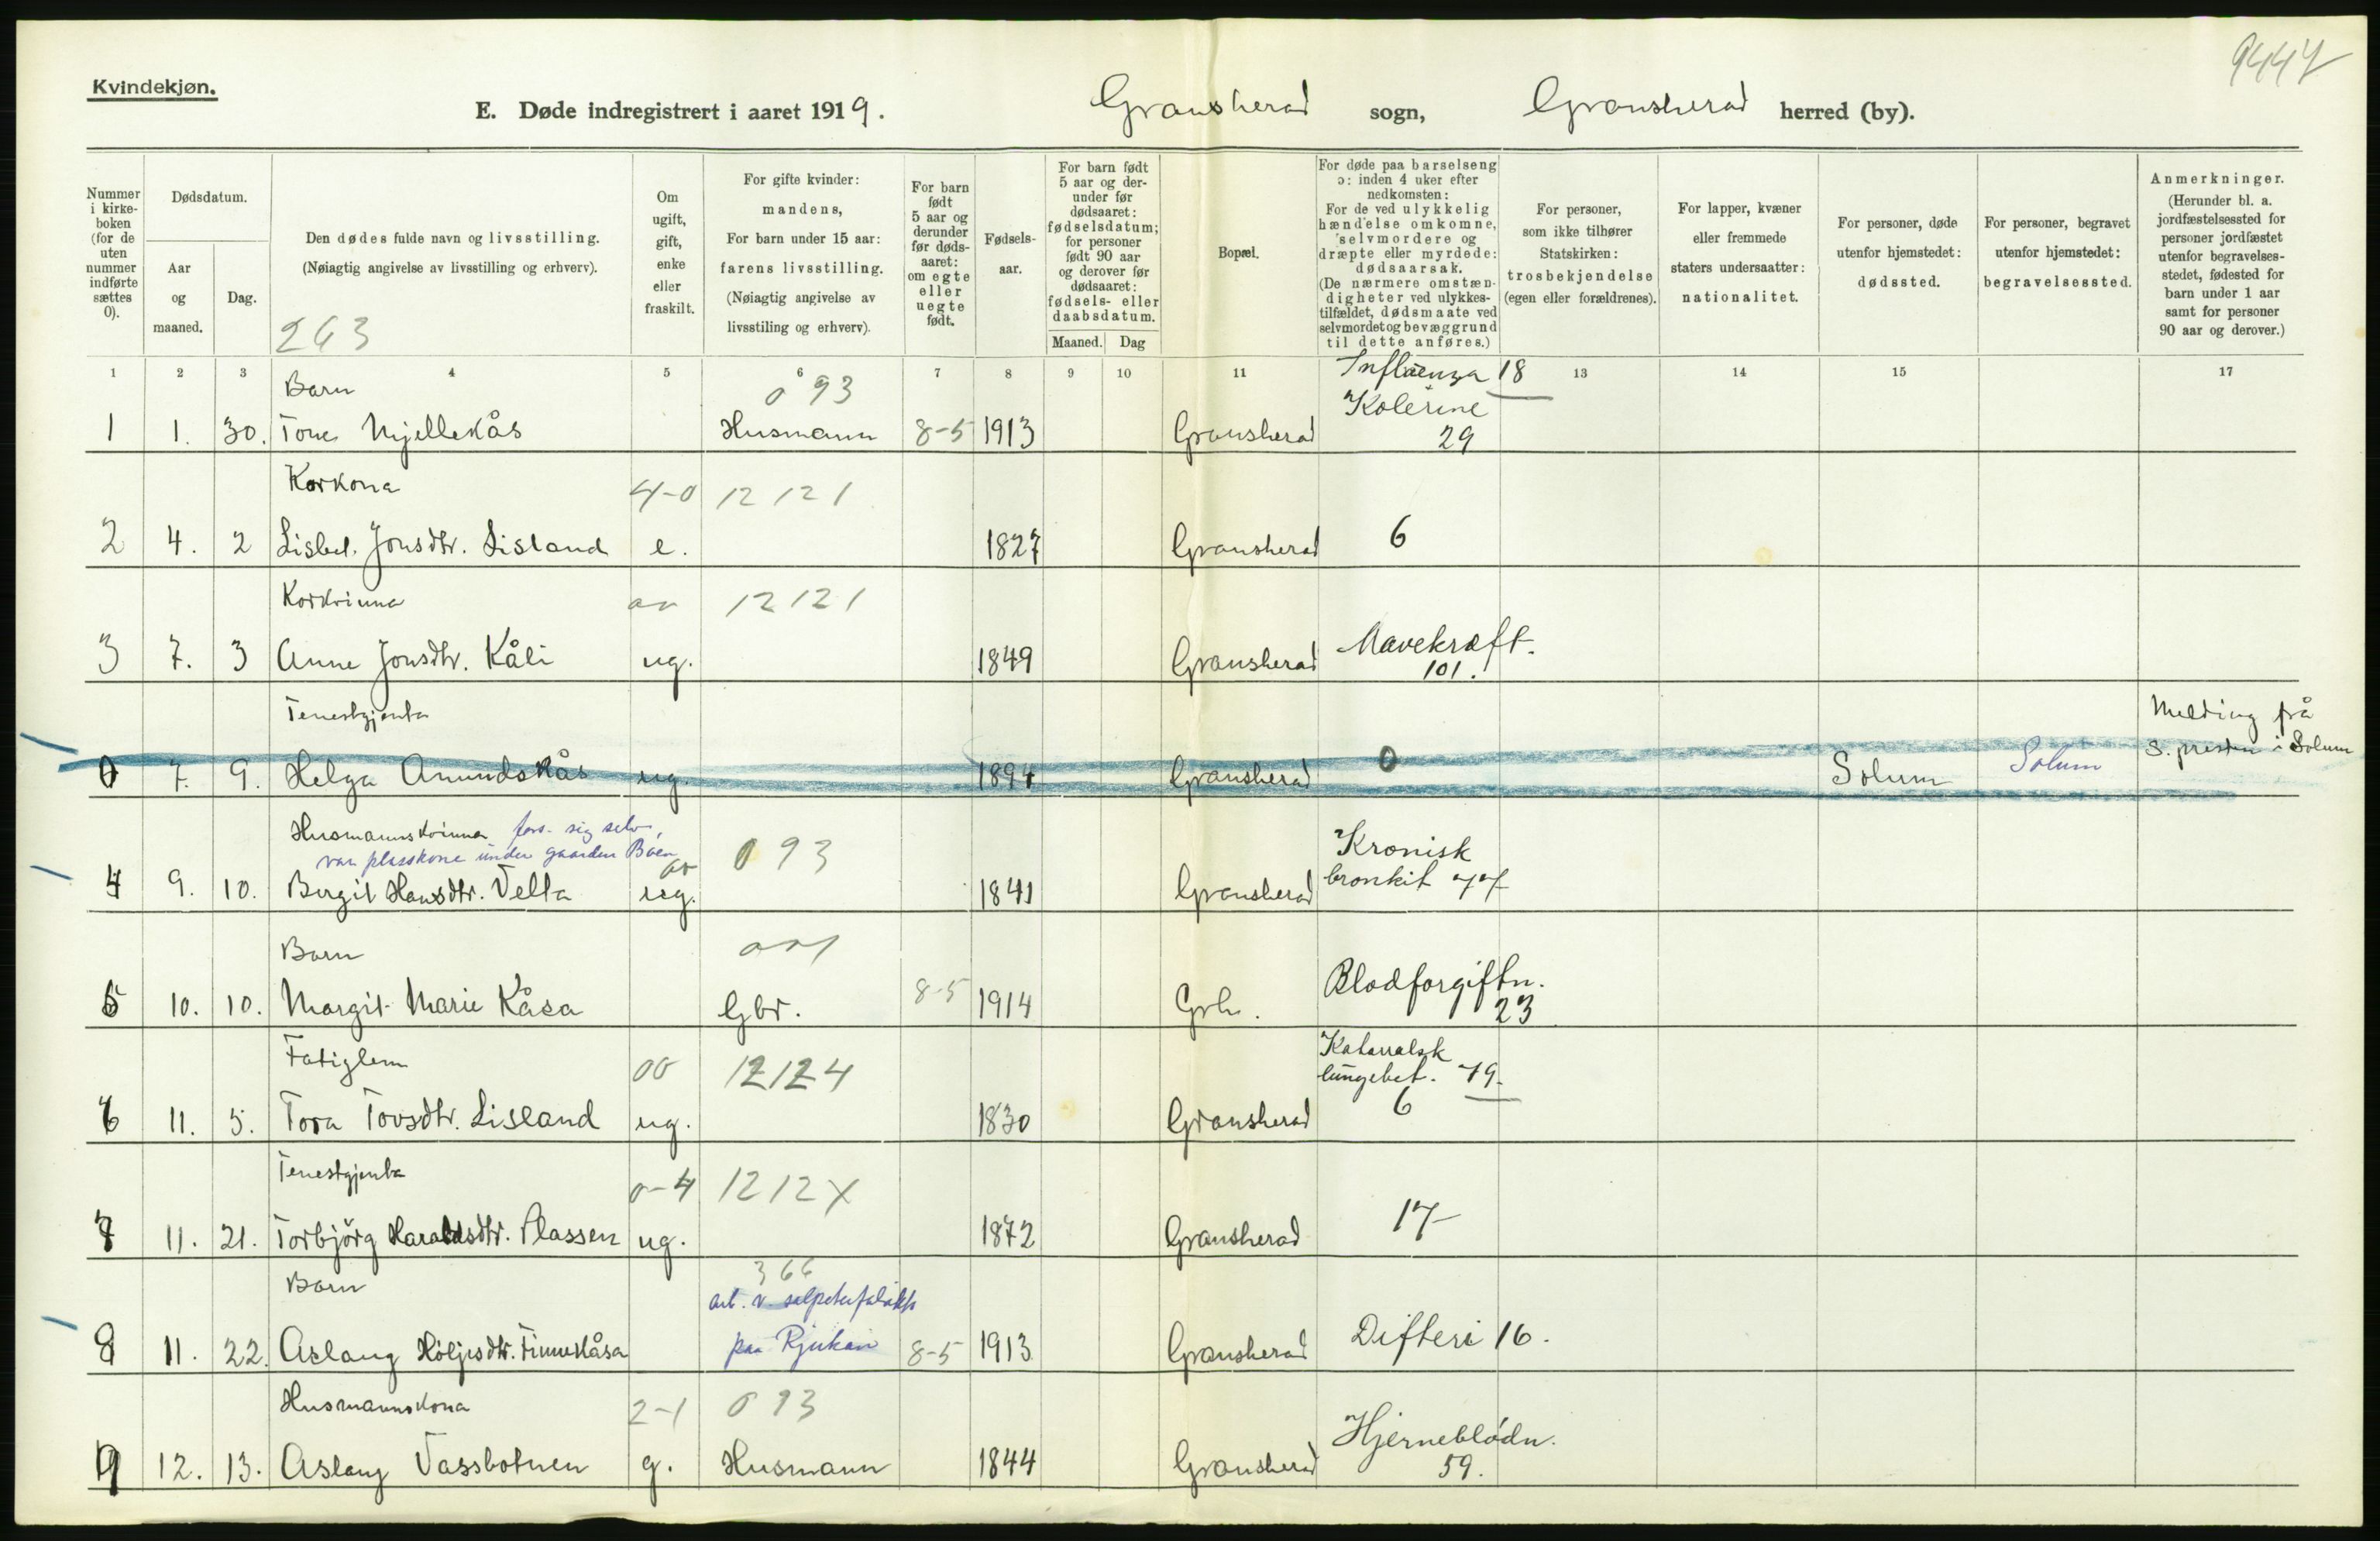 9447
Kvindekjøn.
E. Døde indregistrert i aaret 1919. Gransherad sogn, Gransherad herred (by).
Nummer i kirke-boken (for de uten nummer indførte sættes 0).
Dødsdatum.
Aar og maaned.
Dag.
Den dødes fulde navn og livsstilling.
(Nøiagtig angivelse av livsstilling og erhverv).
263
Om ugift, gift, enke eller fraskilt.
For gifte kvinder: mandens,
For barn under 15 aar: farens livsstilling.
(Nøiagtig angivelse av livsstiling og erhverv).
For barn født 5 aar og derunder før døds-aaret: om egte eller uegte født.
Fødsels-aar.
For barn født 5 aar og der-under før dødsaaret: fødselsdatum; for personer født 90 aar og derover før dødsaaret: fødsels- eller daabsdatum.
Maaned. Dag
Bopæl.
For døde paa barselseng ɔ: inden 4 uker efter nedkomsten:
For de ved ulykkelig hændelse omkomne, selvmordere og dræpte eller myrdede: dødsaarsak.
(De nærmere omstæn-digheter ved ulykkes-tilfældet, dødsmaate ved selvmordet og bevæggrund til dette anføres.)
For personer, som ikke tilhører Statskirken: trosbekjendelse (egen eller forældrenes).
For lapper, kvæner eller fremmede staters undersaatter: nationalitet.
For personer, døde utenfor hjemstedet: dødssted.
For personer, begravet utenfor hjemstedet: begravelsessted.
Anmerkninger.
(Herunder bl. a. jordfæstelsessted for personer jordfæstet utenfor begravelses-stedet, fødested for barn under 1 aar samt for personer 90 aar og derover.)
1 2 3 4 5 6 7 8 9 10 11 13 14 15 17
Barn 0 93 Influenza 18
Kolerine
1 1. 30. Tone Mjellekås Husmann 8-5 1913 Gransherad 29
Korkona 4-0 12 121
2 4. 2 Lisbet Jonsdtr. Lisland e. 1827 Gransherad 6
Korkvinna 00 12 121
3 7. 3 Anne Jonsdtr. Kåli ug. 1849 Gransherad Mavekræft.
101.
Tenestgjenta Melding frå
0 7. 9. Helga Amundskås ug. 1894 Gransherad 0 Solum Solum S. presten i Solum
Husmannskvinna fors. sig selv,
var plasskone under gaarden Boen
00 0 93 Kronisk
4 9. 10. Birgit Hansdtr. Velta ug. 1841 Gransherad bronkit 77
Barn 001
5 10. 10. Margit Marie Kåsa Gbr. 8-5 1914 Grh. Blodforgiftn.
23
Fatiglem 00 12124 Katarralsk
lungebet. 79.
6 11. 5. Tora Tovsdtr. Lisland ug. 1830 Gransherad 6
Tenestgjenta 0-4 1212X
7 11. 21. Torbjörg Haraldsdtr. Plassen ug. 1872 Gransherad 17
Barn 366
arb. v. salpeterfabrikk
8 11. 22. Aslaug Höljesdtr. Finnekåsa paa Rjukan 8-5 1913 Gransherad Difteri 16.
Husmannskona 2-1 0 93
9 12. 13. Aslaug Vassbotnen g. Husmann 1844 Gransherad Hjerneblödn.
59.